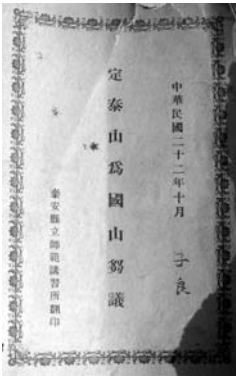 中華民國二十二年十月 子良
定泰山爲國山芻議
泰安縣立師範講習所翻印